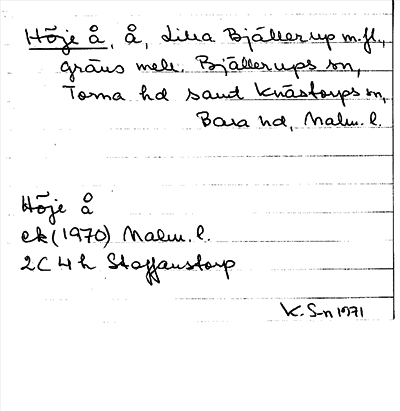 Höje å, å, Lilla Bjällerup m.fl.,
gräns mell. Bjällerups sn,
Torna hd samt Knästorps sn,
Bara hd, Malm. l.
Höje å
ek (1970) Malm. l.
2C 4h Staffanstorp
K. S-n 1971